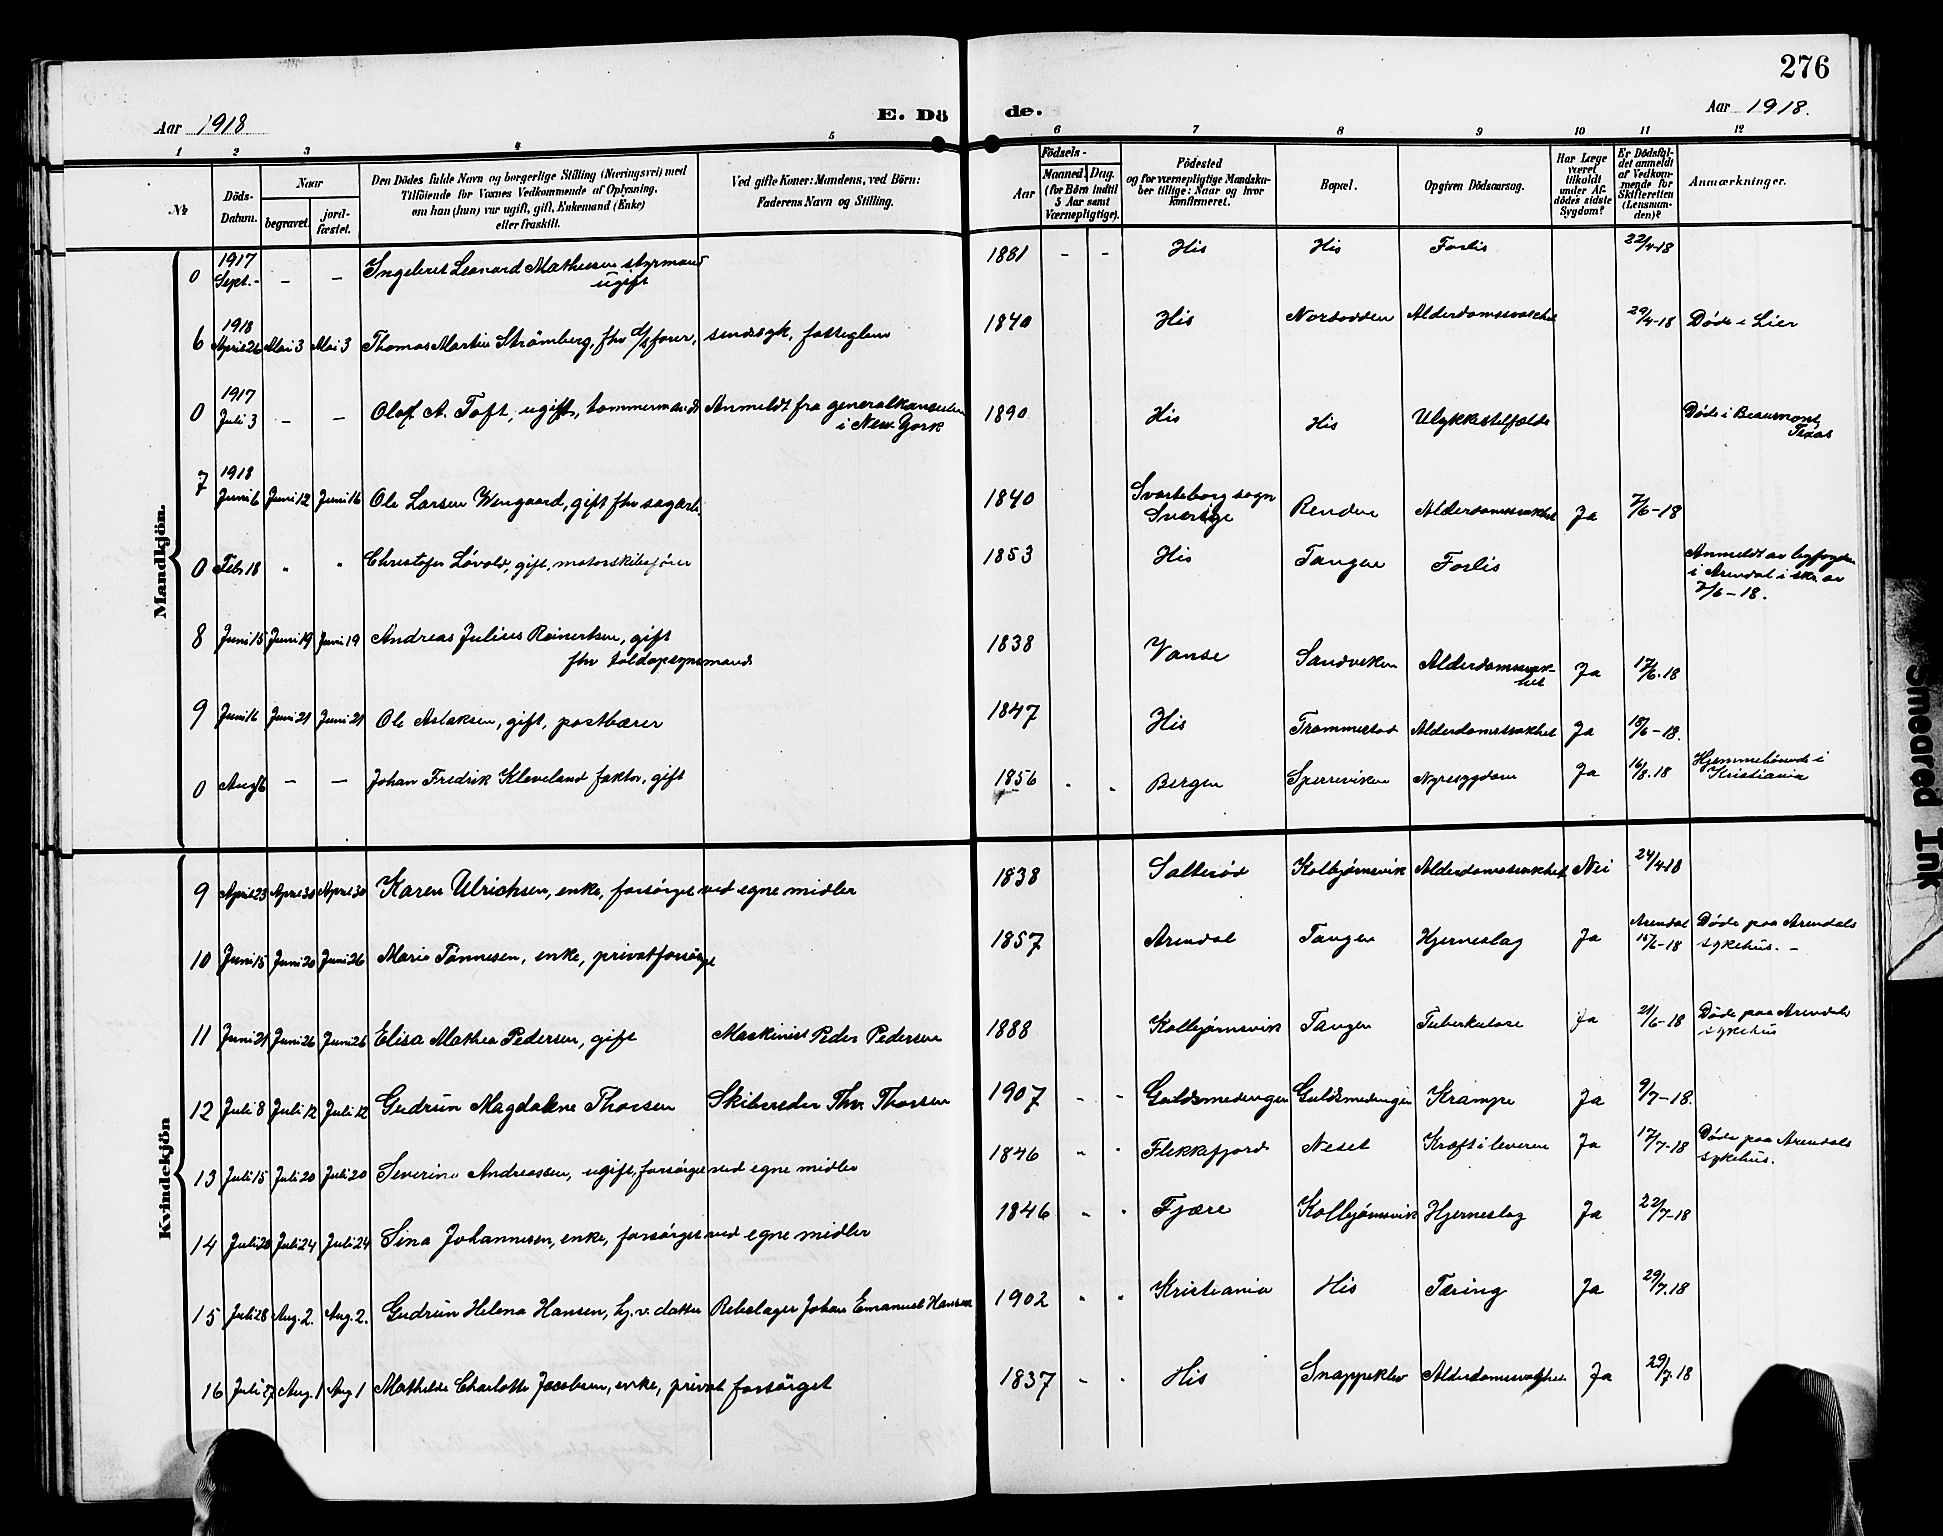 276
Aar 1918
E. Dö
de.
Aar 1918.
1 2 3 4 5 6 7 8 9 10 11 12
№
Döds-Datum.
Naar
begravet.
jord-fæstet.
Den Dödes fulde Navn og borgerlige Stilling (Næringsvei) med
Tilföiende for Voxnes Vedkommende af Oplysning,
om han (hun) var ugift, gift, Enkemand (Enke)
eller fraskilt.
Ved gifte Koner: Mandens, ved Börn:
Faderens Navn og Stilling.
Födsels-
Aar
Maaned. Dag.
(for Börn indtil
5 Aar samt
Værnepligtige).
Födested
og for værnepligtige Mandska-
ber tillige: Naar og hvor
konfirmeret.
Bopæl.
Opgiven Dödsaarsag.
Har Læge
været
tilkaldt
under Af-
dödes sidste
Sygdom?
Er Dödsfal-
det anmeldt
af Vedkom-
mende for
Skifteretten
(Lensman-
den)?
Anmærkninger.
Mandkjön.
0 1917 Sept. - - - Ingebret Leonard Mathiesen styrmand ugift 1881 - - His His Forlis 22/4-18
6 1918 April 26 Mai 3 Mai 3 Thomas Martin Strømberg, fhv s/fører, sindssyk, 1840 His Nordodden Alderdomssvakhet 29/4-18 Døde i Lier
0 1917 Juli 3 - - Olaf A. Toft, ugift, tømmermand Anmeldt fra generalkonsulen i New York 1890 His His Ulykkestilfælde Døde i Beaumont, Texas
7 1918 Juni 6 Juni 12 Juni 16 Ole Larsen Wengaard, gift fhv sagarb. 1840 Svarteborg sogn Sverige Renden Alderdomssvakhet Ja 7/6-18
0 Feb 18 " " Christofer Løvold, gift, motorskibsfører 1853 His Tangen Forlis Anmeldt av byfogden i Arendal i skr. av 7/6-18.
8 Juni 15 Juni 19 Juni 19 Andreas Julius Reinertsen, gift fhv toldopsynsmand 1838 Vanse Sandviken Alderdomssvakhet Ja 17/6-18
9 Juni 16 Juni 21 Juni 21 Ole Aslaksen, gift, postbærer 1847 His Trommestad Alderdomssvakhet Ja 18/6-18.
0 Aug 6 - - Johan Fredrik Kleveland faktor, gift 1856 " " Bergen Sperreviken Nyresygdom Ja 16/8-18 Hjemmehørende i Kristiania
Kvindekjön
9 April 23 April 30 April 30 Karen Ulrichsen, enke, forsørget ved egne midler 1838 Salterød Kolbjørnsvik Alderdomssvakhet Nei 24/4-18
10 Juni 15 Juni 20 Juni 26 Marie Tønnesen, enke, privat forsørget 1857 Arendal Tangen Hjerneslag Ja Arendal 15/6-18 Døde paa Arendals sykehus. -
11 Juni 21 Juni 26 Juni 26 Elisa Mathea Pedersen, gift Maskinist Peder Pedersen 1888 Kolbjørnsvik Tangen Tuberkulose Ja 21/6-18 Døde paa Arendals sykehus
12 Juli 8 Juli 12 Juli 12 Gudrun Magdalene Thorsen Skibsreder Thv. Thorsen 1907 - - Guldsmedengen Guldsmedengen Krampe Ja 9/7-18.
13 Juli 15 Juli 20 Juli 20 Severine Andreassen, ugift, forsørget ved egne midler 1846 " " Flekkefjord Neset Kræft i leveren Ja 17/7-18 Døde paa Arendals sykehus.
14 Juli 20 Juli 24 Juli 24 Sina Johannesen, enke, forsørget ved egne midler 1846 " " Fjære Kolbjørnsvik Hjerneslag Ja 22/7-18
15 Juli 28 Aug. 2. Aug. 2. Gudrun Helena Hansen, hj. v. datter Rebslager Johan Emanuel Hansen 1902 " " Kristiania His Tæring Ja 29/7-18
16 Juli 27 Aug. 1 Aug 1 Mathilde Charlotte Jacobsen, enke, privat forsørget 1837 - " His Snappeklev Alderdomssvakhet Ja 29/7-18
Smeared Ink